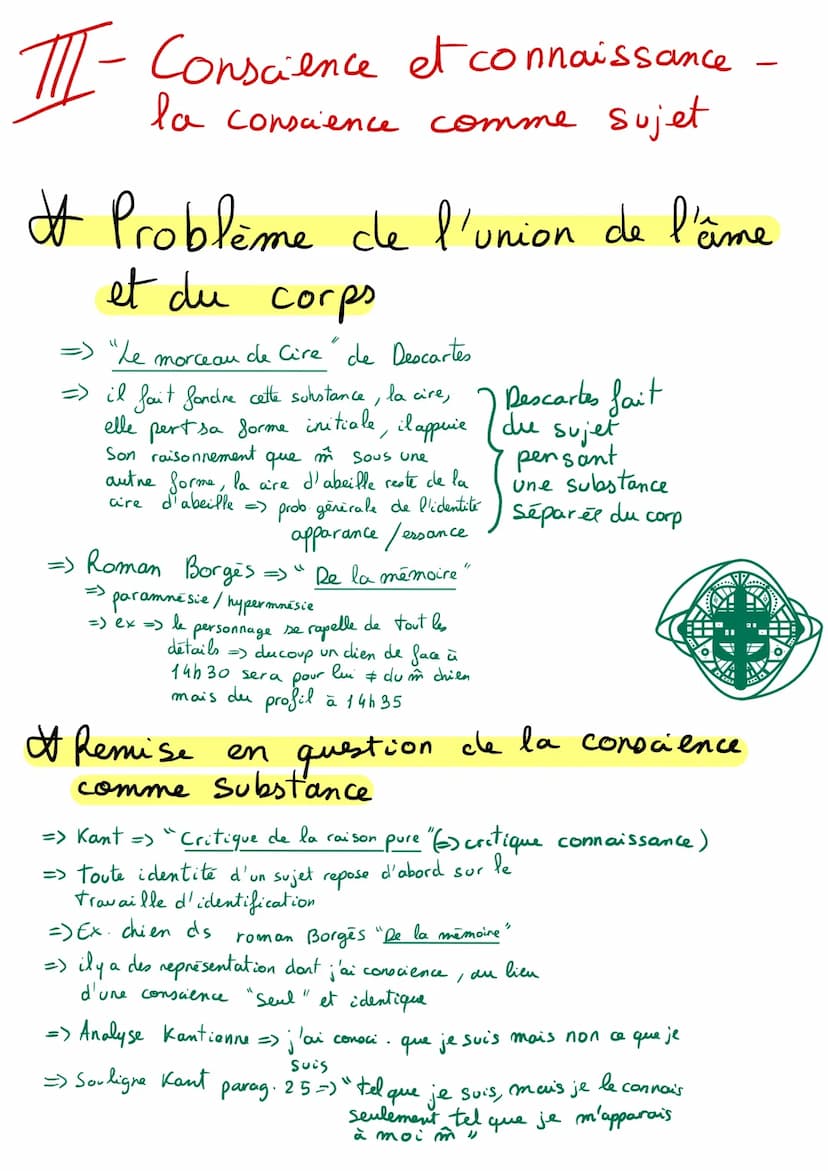 III - Conscience et connaissance -
la conscience comme sujet
Problème de l'union de l'âme
et du corps
=> "Le morceau de Cire" de Descartes
=> il fait fondre cette substance, la cire,
elle pert sa forme initiale, il appuie
son raisonnement que m̂ sous une
autre forme, la cire d'abeille reste de la
cire d'abeille => prob générale de l'identité
apparance / essance
Descartes fait
du sujet
pensant
une substance
séparée du corp
=> Roman Borgès => "De la mémoire"
=> paramnésie / hypermnésie
=> ex => le personnage se rapelle de tout les
détails => ducoup un chien de face à
14h30 sera pour lui ≠ du m̂ chien
mais du profil à 14h35
Remise en question de la conscience
comme substance
=> Kant => "Critique de la raison pure" (=> critique connaissance)
=> Toute identité d'un sujet repose d'abord sur le
travaille d'identification
=> Ex. chien ds roman Borgès "De la mémoire"
=> il y a des représentation dont j'ai conscience, au lieu
d'une conscience "seul" et identique
=> Analyse Kantienne => j'ai consci. que je suis mais non ce que je
suis
=> Souligne Kant parag. 25 => "tel que je suis, mais je le connais
seulement tel que je m'apparais
à moi m̂"